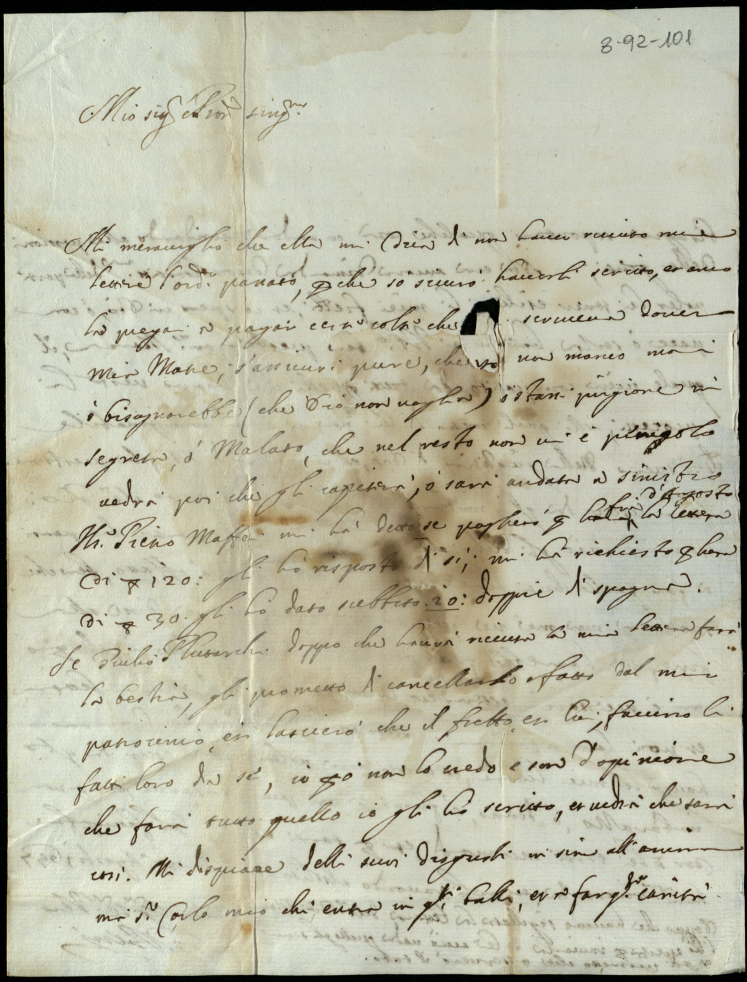 8-92-101
Mio sig.r e Pron. sing.mo
Mi meraviglio che ella mi dica di non haver riceuto mie
lettere l'ord.o passato, perche so sicuro haverli scritto, et anco
la pregai a pagar certe cose che scriveva dover
mia Madre, s'assicuri pure, che io non manco mai
e bisognarebbe (che Dio non voglia) o stassi prigione in
segreta, o Malato, che nel resto non vi è pericolo
vedrà poi che gli capiterà, o sarà andata a sinistro
Il s.r Piero Maffei mi ha detto se pagherò la lettera d'Agosto
di 120: gli ho risposto di sì; mi ha richiesto hora
di 30. gli ho dato subbito 10: doppie di spagna.
Se Giulio doppo che haverà riceuta la mia lettera farà
la bestia, gli prometto di cancellarlo affatto dal mio
patrocinio, et lascierò che il fratto, et lui, faccino li
fatti loro da sé, io però non lo credo e son d'opinione
che farà tutto quello io gli hò scritto, et vedrà che sarà
così. Mi dispiace delli suoi disgusti in sin all'anima
ma s.r Carlo mio chi entra in q.ti balli, et a far q.ste carità